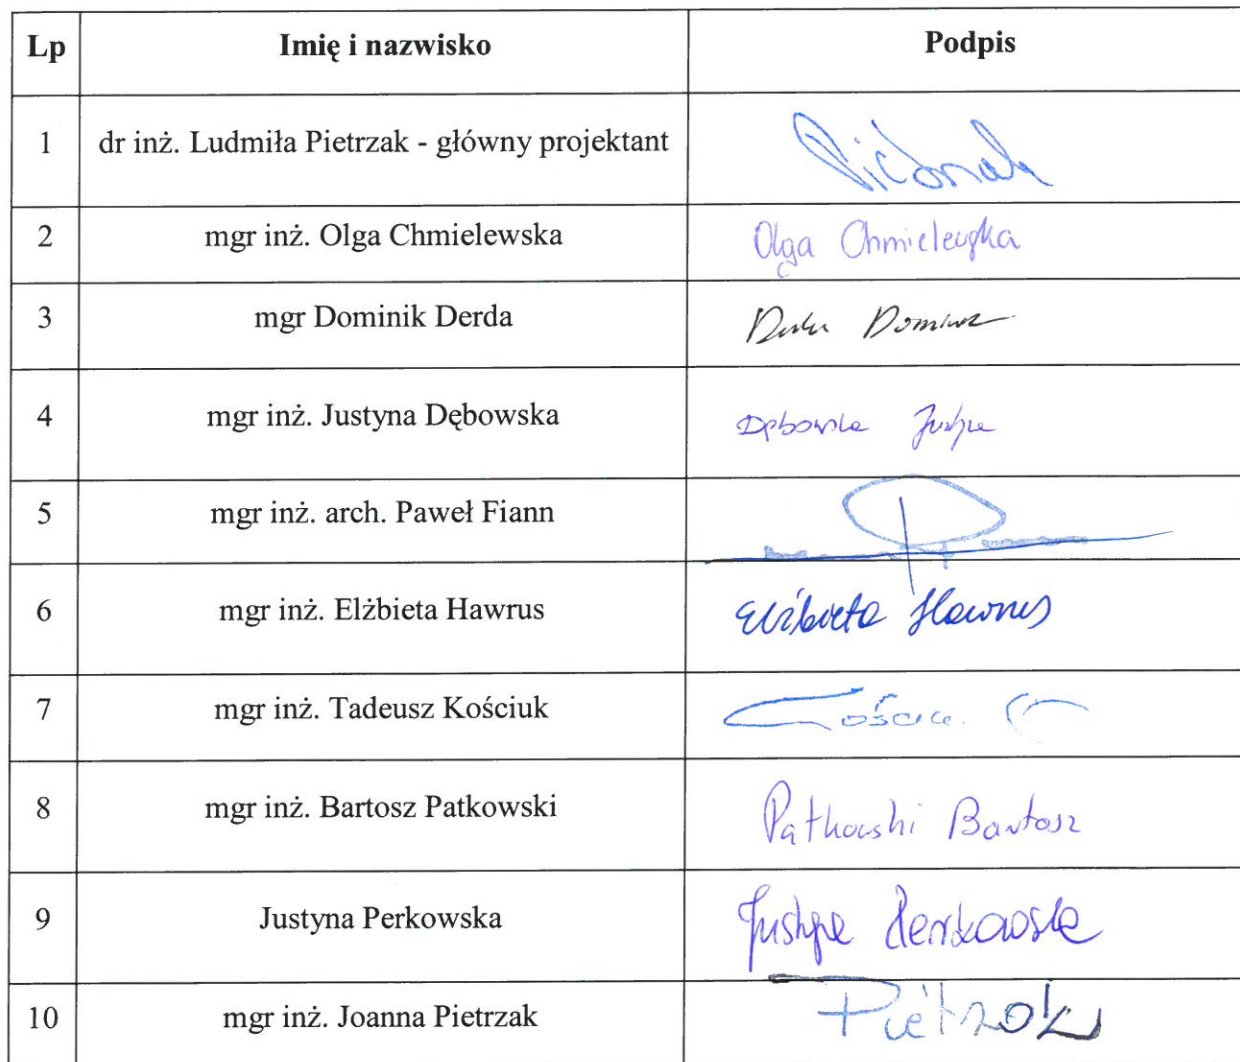 Lp Imię i nazwisko Podpis
1 dr inż. Ludmiła Pietrzak - główny projektant
2 mgr inż. Olga Chmielewska Olga Chmielewska
3 mgr Dominik Derda Derda Dominik
4 mgr inż. Justyna Dębowska Dębowska Justyna
5 mgr inż. arch. Paweł Fiann
6 mgr inż. Elżbieta Hawrus Elżbieta Hawrus
7 mgr inż. Tadeusz Kościuk
8 mgr inż. Bartosz Patkowski Patkowski Bartosz
9 Justyna Perkowska Justyna Perkowska
10 mgr inż. Joanna Pietrzak Pietrzak